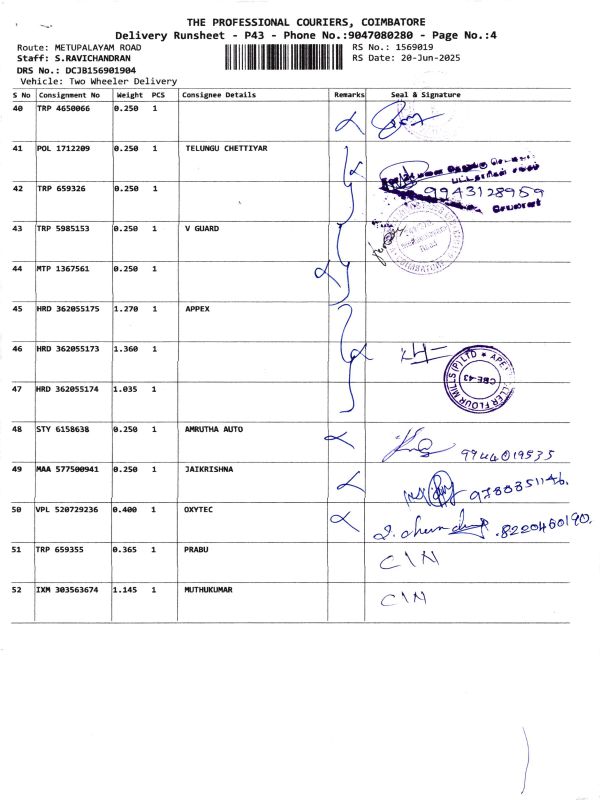 THE PROFESSIONAL COURIERS, COIMBATORE
Delivery Runsheet - P43 - Phone No.:9047080280 - Page No.:4
Route: METUPALAYAM ROAD RS No.: 1569019
Staff: S.RAVICHANDRAN RS Date: 20-Jun-2025
DRS No.: DCJB156901904
Vehicle: Two Wheeler Delivery
S No Consignment No Weight PCS Consignee Details Remarks Seal & Signature
40 TRP 4650066 0.250 1
41 POL 1712209 0.250 1 TELUNGU CHETTIYAR
42 TRP 659326 0.250 1 9943128959
43 TRP 5985153 0.250 1 V GUARD
44 MTP 1367561 0.250 1
45 HRD 362055175 1.270 1 APPEX
46 HRD 362055173 1.360 1
47 HRD 362055174 1.035 1
48 STY 6158638 0.250 1 AMRUTHA AUTO 9944019535
49 MAA 577500941 0.250 1 JAIKRISHNA
50 VPL 520729236 0.400 1 OXYTEC .8220460190.
51 TRP 659355 0.365 1 PRABU CIN
52 IXM 303563674 1.145 1 MUTHUKUMAR CIN